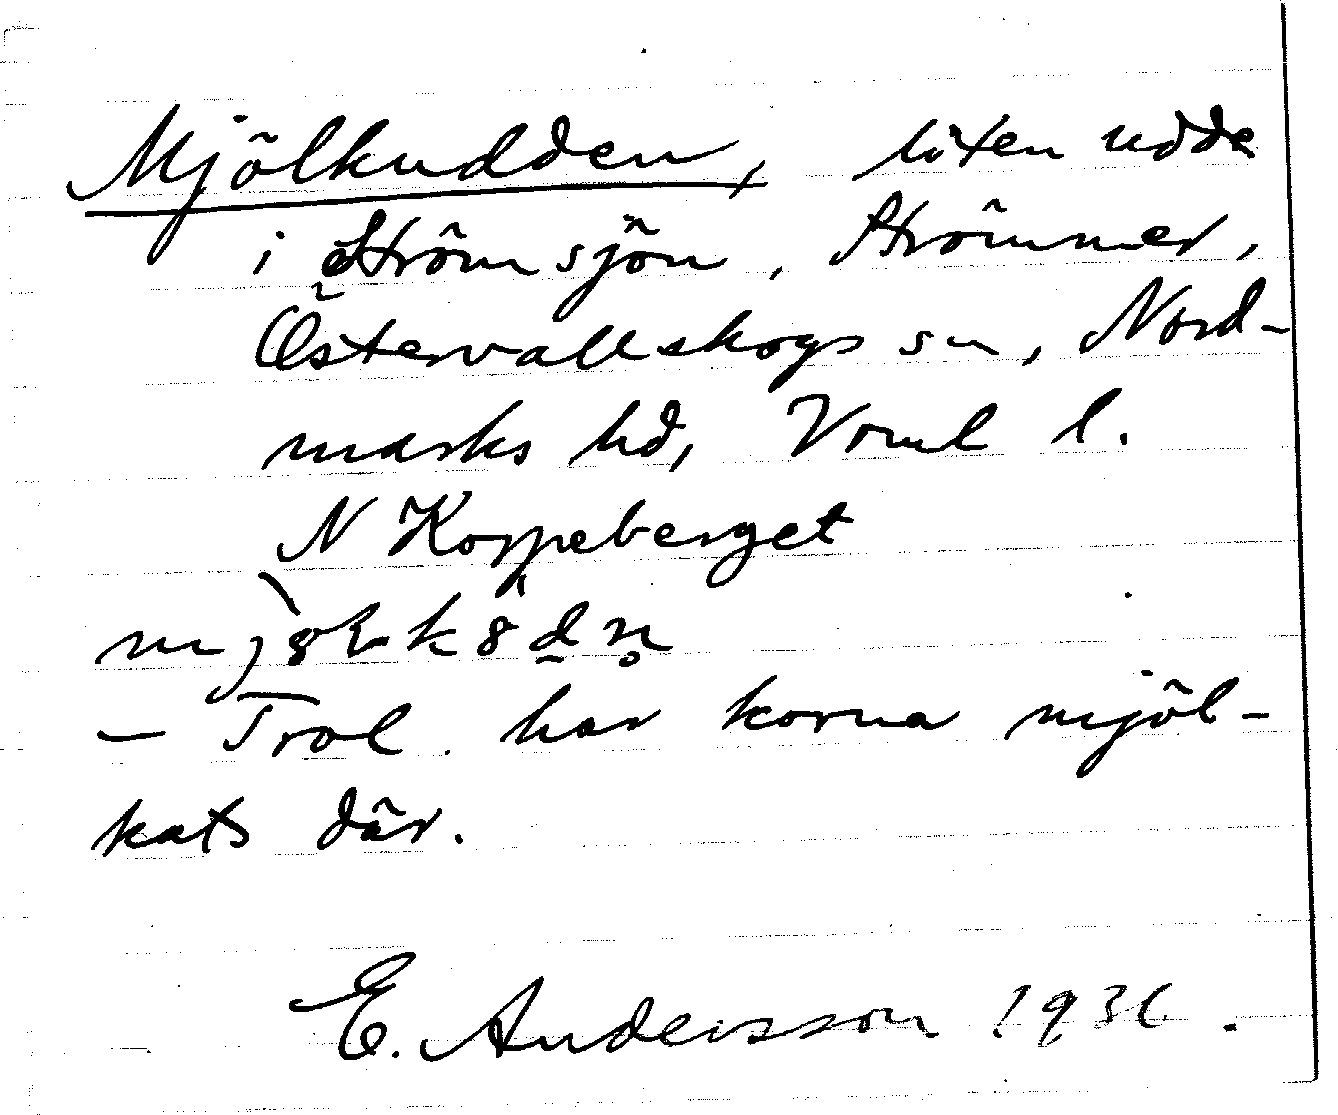 Mjölkudden, liten udde
i Strömsjön, Strömmer,
Östervallskogs sn, Nord-
marks hd, Verml l.
N Koppeberget
— Trol. har korna mjöl-
kats där.
E. Andersson 1936.